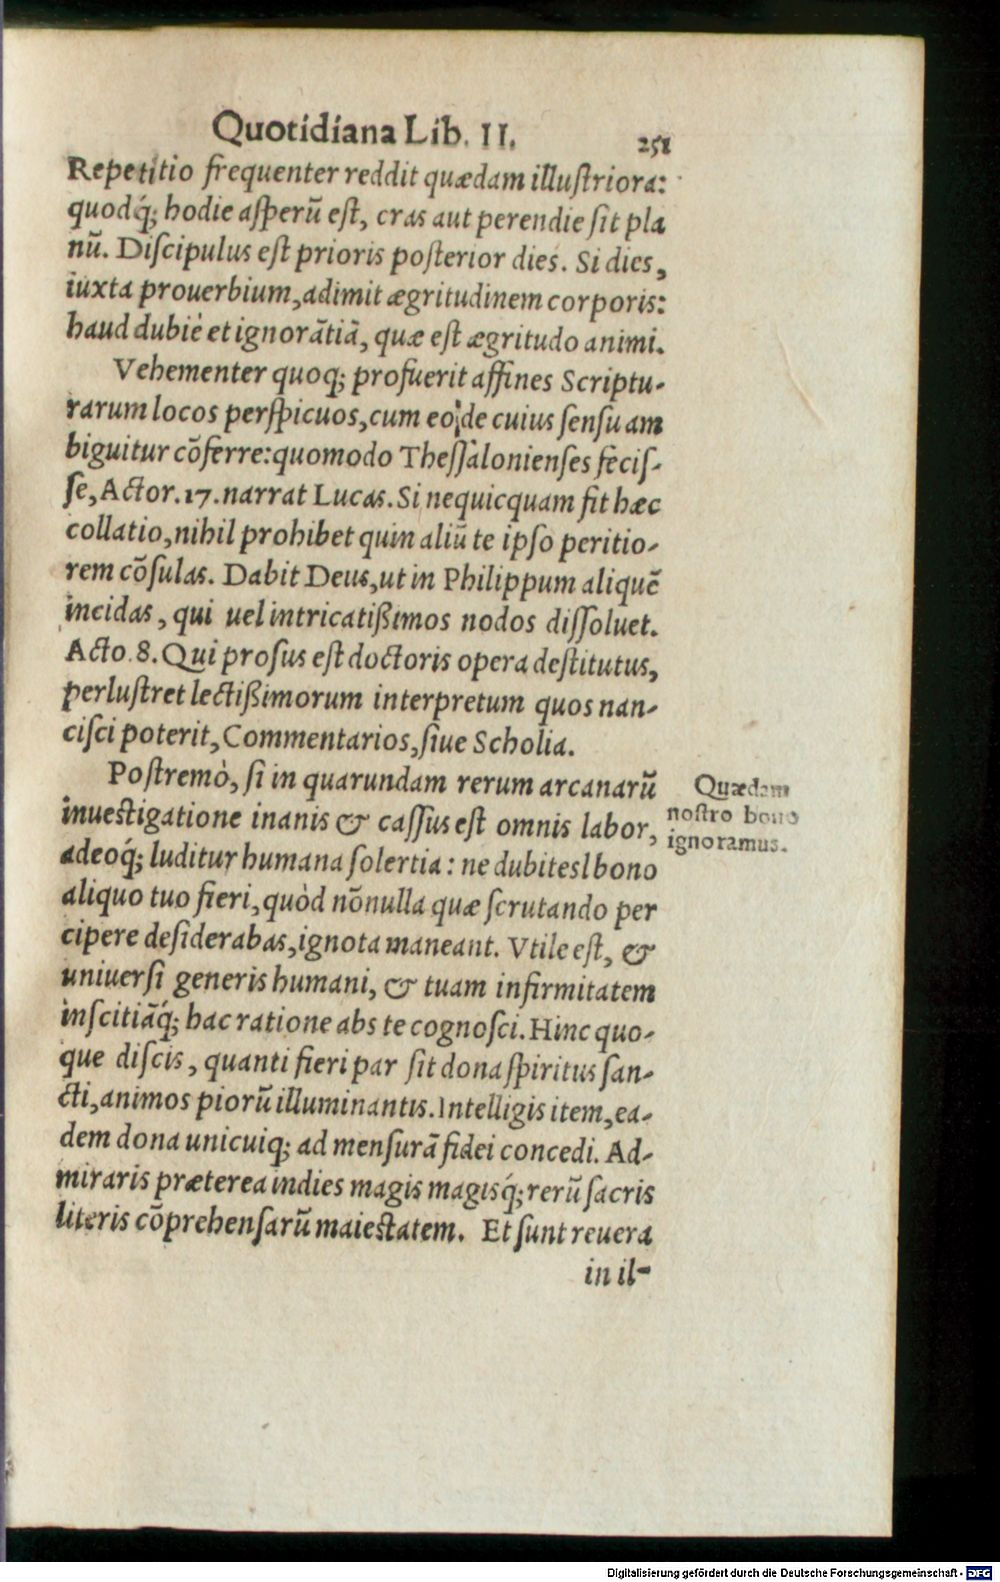 Quotidiana Lib. II. 251
Repetitio frequenter reddit quædam illuſtriora:
quodq́; hodie aſperũ eſt, cras aut perendie fit pla
nũ. Diſcipulus eſt prioris poſterior dies. Si dies,
iuxta prouerbium, adimit ægritudinem corporis:
haud dubiè et ignorãtiã, quæ eſt ægritudo animi.
Vehementer quoq; profuerit affines Scriptu-
rarum locos perſpicuos, cum eo, de cuius ſenſu am
biguitur cõferre: quomodo Theſſalonienſes feciſ-
ſe, Actor. 17. narrat Lucas. Si nequicquam fit hæc
collatio, nihil prohibet quin aliũ te ipſo peritio-
rem cõſulas. Dabit Deus, ut in Philippum aliquẽ
incidas, qui uel intricatißimos nodos diſſoluet.
Acto. 8. Qui proſus eſt doctoris opera deſtitutus,
perluſtret lectißimorum interpretum quos nan-
ciſci poterit, Commentarios, ſiue Scholia.
Poſtremò, ſi in quarundam rerum arcanarũ
inueſtigatione inanis & caſſus eſt omnis labor,
adeoq́; luditur humana ſolertia: ne dubites bono
aliquo tuo fieri, quòd nõnulla quæ ſcrutando per
cipere deſiderabas, ignota maneant. Vtile eſt, &
uniuerſi generis humani, & tuam infirmitatem
inſcitiãq́; hac ratione abs te cognoſci. Hinc quo-
que diſcis, quanti fieri par ſit dona ſpiritus ſan-
cti, animos piorũ illuminantis. Intelligis item, ea-
dem dona unicuiq; ad menſurã fidei concedi. Ad-
miraris præterea indies magis magisq́; rerũ ſacris
literis cõprehenſarũ maieſtatem. Et ſunt reuera
in il-
Quædam
noſtro bono
ignoramus.
Digitalisierung gefördert durch die Deutsche Forschungsgemeinschaft - DFG